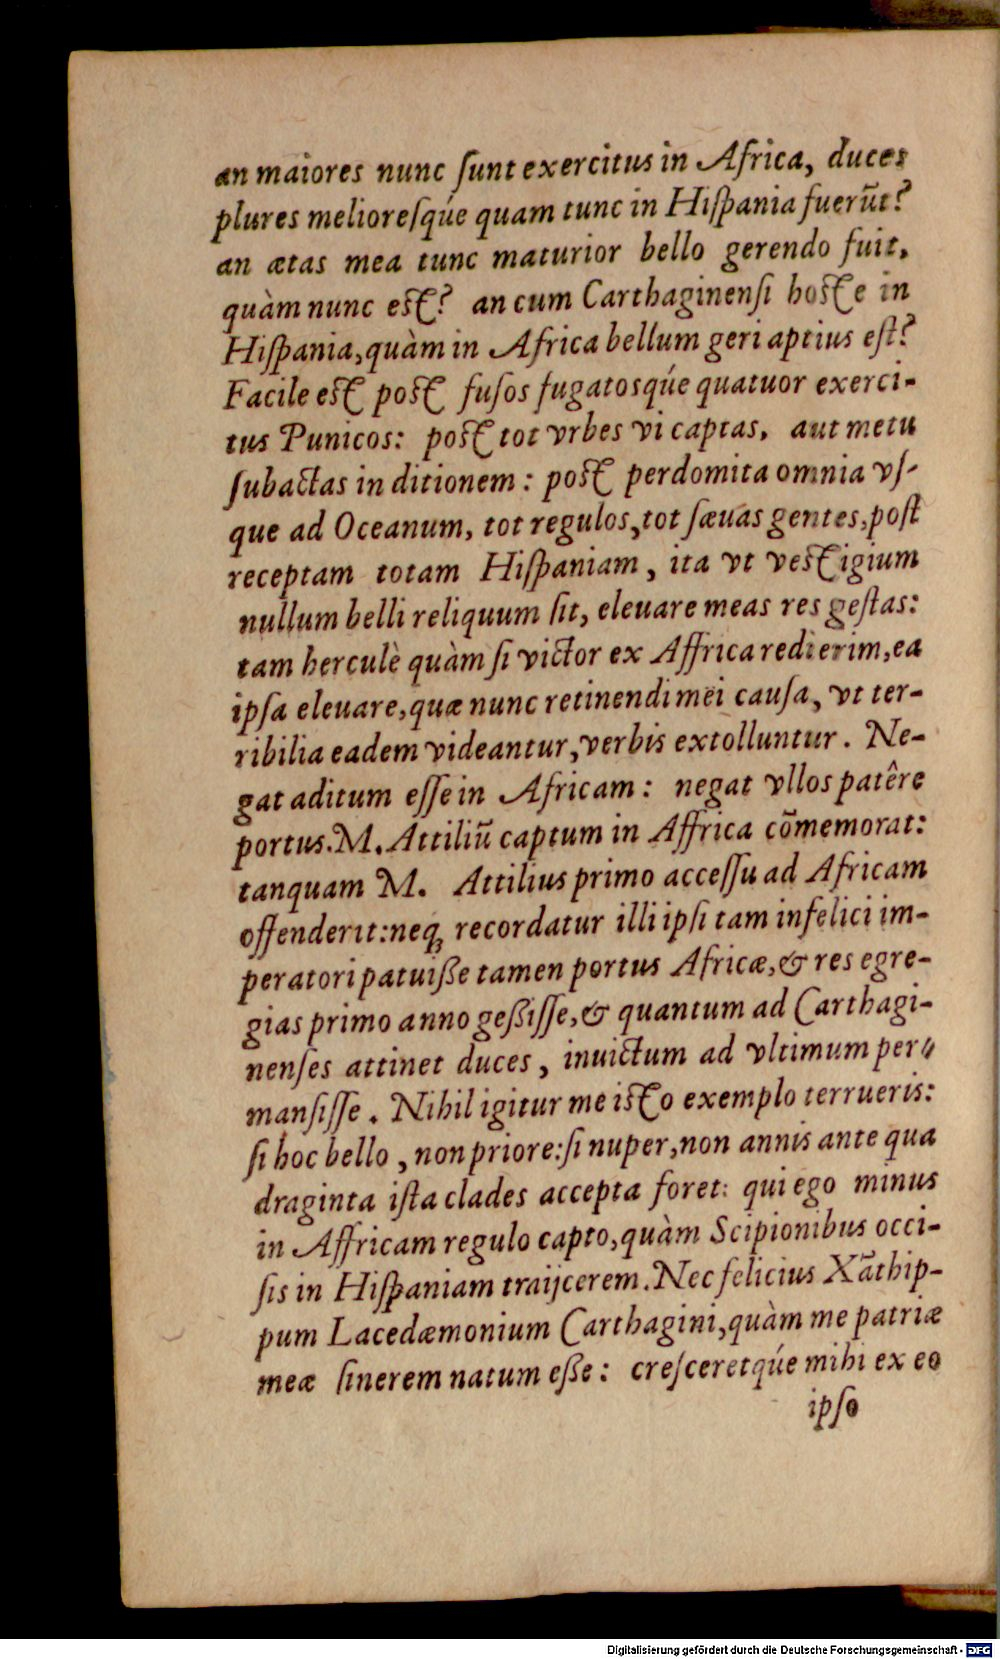 an maiores nunc ſunt exercitus in Africa, duces
plures melioreſqúe quam tunc in Hiſpania fuerūt?
an ætas mea tunc maturior bello gerendo fuit,
quàm nunc eſt? an cum Carthaginenſi hoſte in
Hiſpania, quàm in Africa bellum geri aptius eſt?
Facile eſt poſt fuſos fugatosqúe quatuor exerci-
tus Punicos: poſt tot vrbes vi captas, aut metu
ſubactas in ditionem: poſt perdomita omnia vſ-
que ad Oceanum, tot regulos, tot ſæuas gentes, poſt
receptam totam Hiſpaniam, ita vt veſtigium
nullum belli reliquum ſit, eleuare meas res geſtas:
tam herculè quàm ſi victor ex Affrica redierim, ea
ipſa eleuare, quæ nunc retinendi mei cauſa, vt ter-
ribilia eadem videantur, verbis extolluntur. Ne-
gat aditum eſſe in Africam: negat vllos patêre
portus. M. Attiliū captum in Affrica cōmemorat:
tanquam M. Attilius primo acceſſu ad Africam
offenderit: neq; recordatur illi ipſi tam infelici im-
peratori patuiße tamen portus Africæ, & res egre-
gias primo anno geßiſſe, & quantum ad Carthagi-
nenſes attinet duces, inuictum ad vltimum per-
manſiſſe. Nihil igitur me iſto exemplo terrueris:
ſi hoc bello, non priore: ſi nuper, non annis ante qua
draginta iſta clades accepta foret: qui ego minus
in Affricam regulo capto, quàm Scipionibus occi-
ſis in Hiſpaniam traijcerem. Nec felicius Xāthip-
pum Lacedæmonium Carthagini, quàm me patriæ
meæ ſinerem natum eße: creſceretqúe mihi ex eo
ipſo
Digitalisierung gefördert durch die Deutsche Forschungsgemeinschaft - DFG